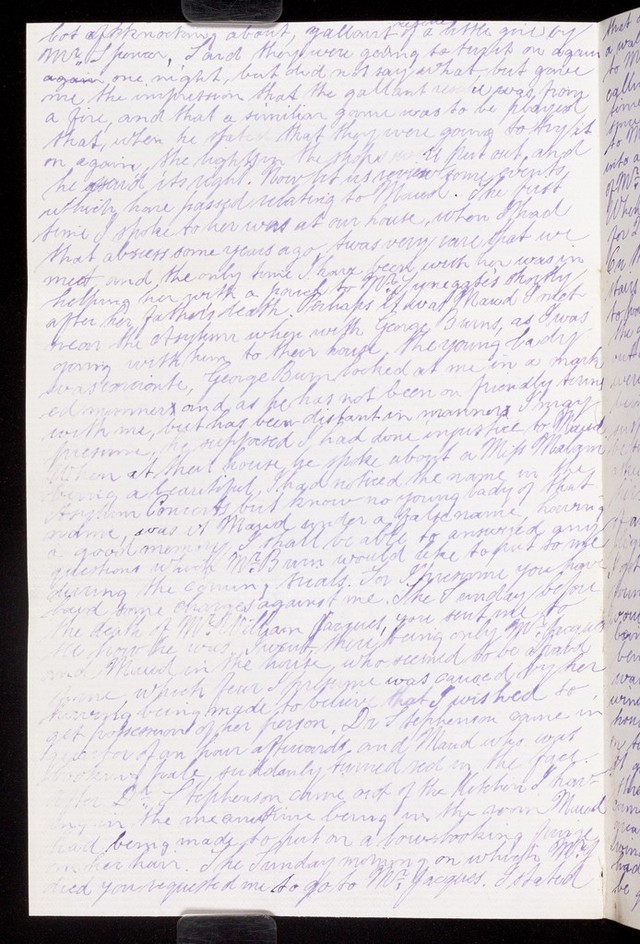 bot of knocking about, gallant rescue of a little girl by
Mr. Spencer, I said they were going to try it on again
again one night, but did not say what, but gave
me the impression that the gallant rescue was from
a fire, and that a similiar game was to be played
that, when he stated that they were going to try it
on again, the lights in the shops were put out, and
he said its right. Now let us review some events
which have passed relating to Maud. The first
time I spoke to her was at our house, when I had
that abscess some years ago, twas very rare that we
meet and the only time I have been with her was in
helping her with a pouch to Mr. shortly
after her fathers death. Perhaps it was Maud I met
near the Asylum when with George Burns, as I was
going with him to their house, the young lady
was , George Burn looked at me in a mark
ed manner, and as he has not been on friendly terms
with me, but has been distant in manner, I may
presume, he supposed I had done injustice to Maud.
When at their house he spoke about a Miss Malyn
being a beautiful, I had noticed the name in the
Asylum Concerts but know no young lady of that
name, was it Maud under a false name, having
a good memory I shall be able to answered any
questions which Mr. Burn would like to put to me
during the coming trials. For I presume you have
laid some charges against me. The Sunday before
the death of Mr. William Jacques, you sent me to
see how he was, I went, there being only Mr. Jacques
and Maud in the house, who seemed to be afraid
of me, which fear I presume was caused by her
having being made to believe that I wished to
get possession of her person, Dr. Stephenson came in
quarter of an hour afterwards, and Maud who was
looking pale, suddenly turned red in the face
after Dr. Stephenson came out of the Kitchen I hav
ing in the meantime being in the room Maud
had being made to put on a low looking
on her hair. The Sunday morning on which Mr. J
died you requested me to go to Mr. Jacques. I stated